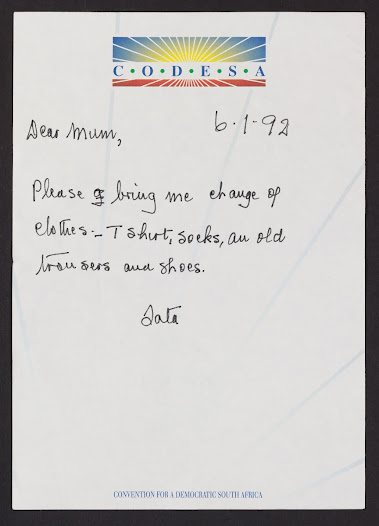 C·O·D·E·S·A
6·1·92
Dear Mum,
Please bring me change of
clothes:- T shirt, socks, an old
trousers and shoes.
Tata
CONVENTION FOR A DEMOCRATIC SOUTH AFRICA